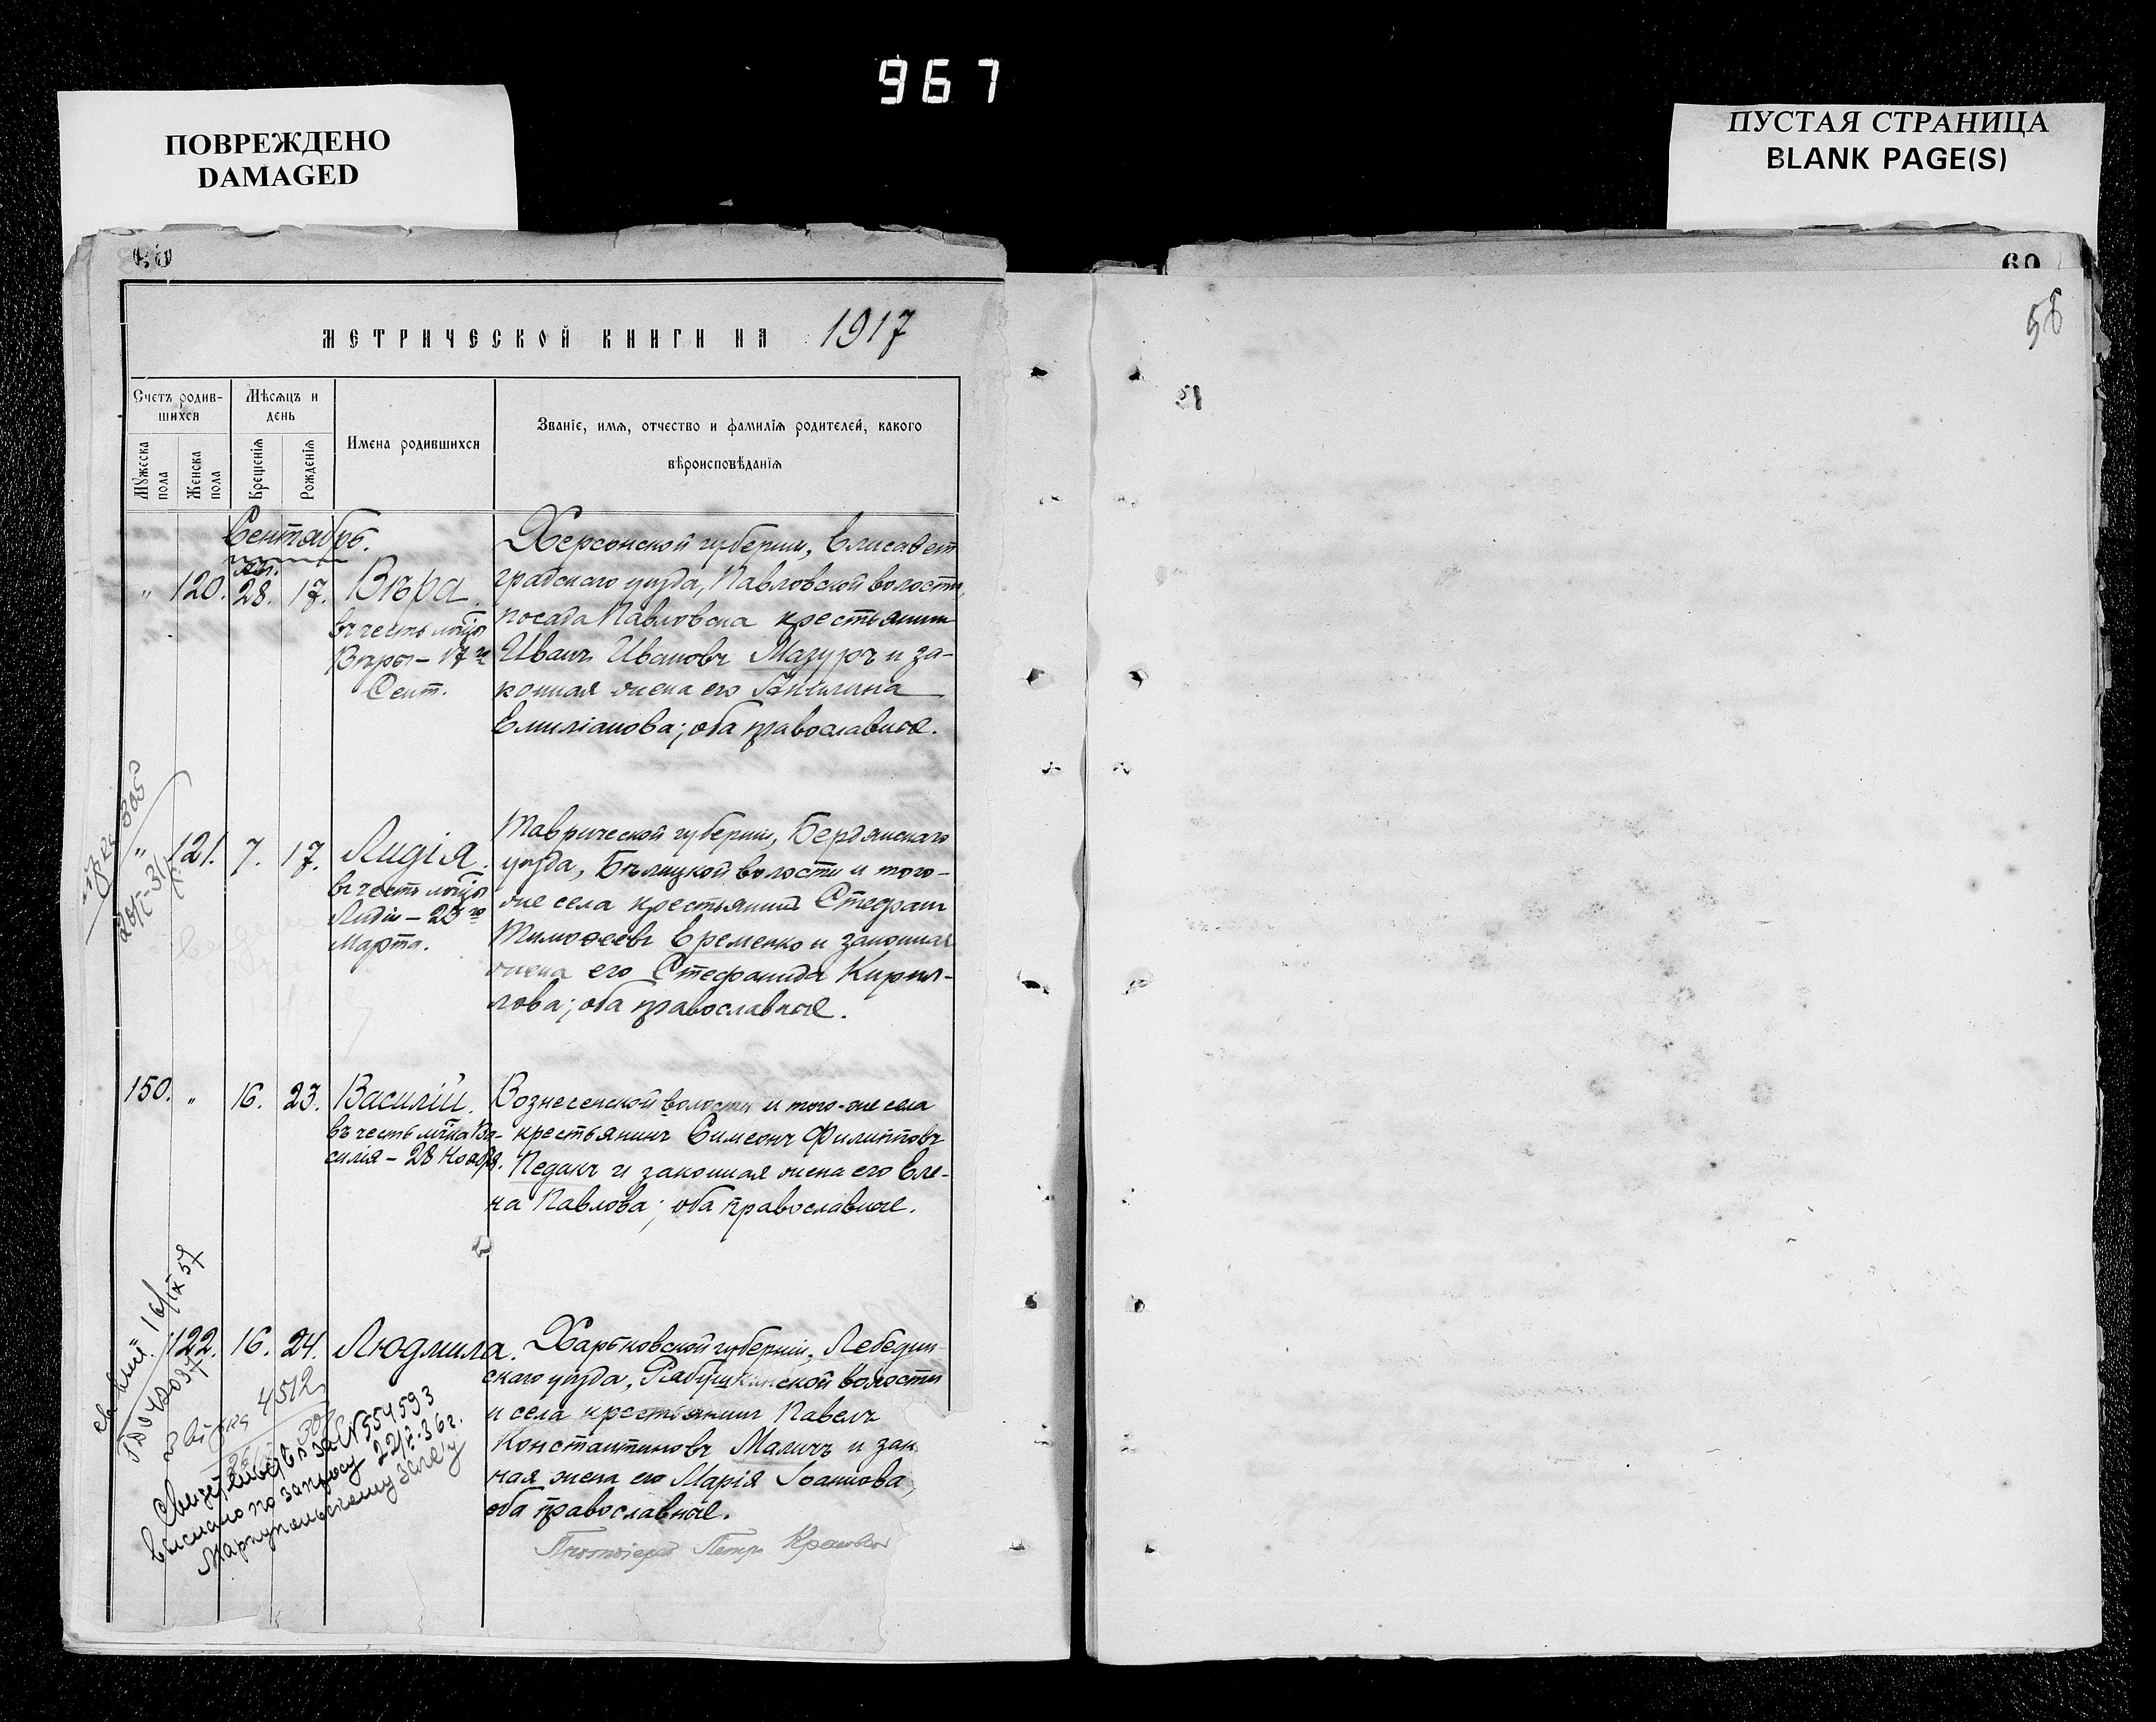 967
ПОВРЕЖДЕНО
DAMAGED
ПУСТАЯ СТРАНИЦА
BLANK PAGE(S)
60
58
51
МЕТРИЧЕСКОЙ КНИГИ НА 1917
Счетъ родив-
шихся
Мужеска пола
Женска пола
Мѣсяцъ и
день
Крещенія
Рожденія
Имена родившихся
Званіе, имя, отчество и фамилія родителей, какого
вѣроисповѣданія
Сентябрь.
" 120. 28. 17. Вѣра.
въ честь мчцы
Вѣры – 17го
Сент.
Херсонской губерніи, Елисавет
градскаго уѣзда, Павловской волости,
посада Павловска крестьянин
Иванъ Ивановъ Мазуръ и за-
конная жена его
Емиліанова; оба православные.
" 121. 7. 17. Лидія.
въ честь мчцы
Лидіи – 23го
Марта.
Таврической губерніи, Бердянскаго
уѣзда, Бѣлицкой волости и того-
же села крестьянинъ Стефан
Тимоѳеевъ Еременко и законная
жена его Стефанида Кирил-
лова; оба православные.
150. " 16. 23. Василій.
въ честь мчка Ва-
силія – 28 Ноября.
Вознесенской волости и того-же села
крестьянинъ Симеонъ Филипповъ
Педакъ и законная жена его Еле-
на Павлова; оба православные.
" 122. 16. 24. Людмила.
Харьковской губерніи, Лебедин-
скаго уѣзда, Рябушкинской волости
и села крестьянинъ Павелъ
Константиновъ Маличъ и зак
ная жена его Марія Іоаннова,
оба православные.
Протоіерей Петръ
16/IX 57
4512
Свидетельство за №554593
выслано по запросу 22/X-36г.
Мариупольскому Загсу